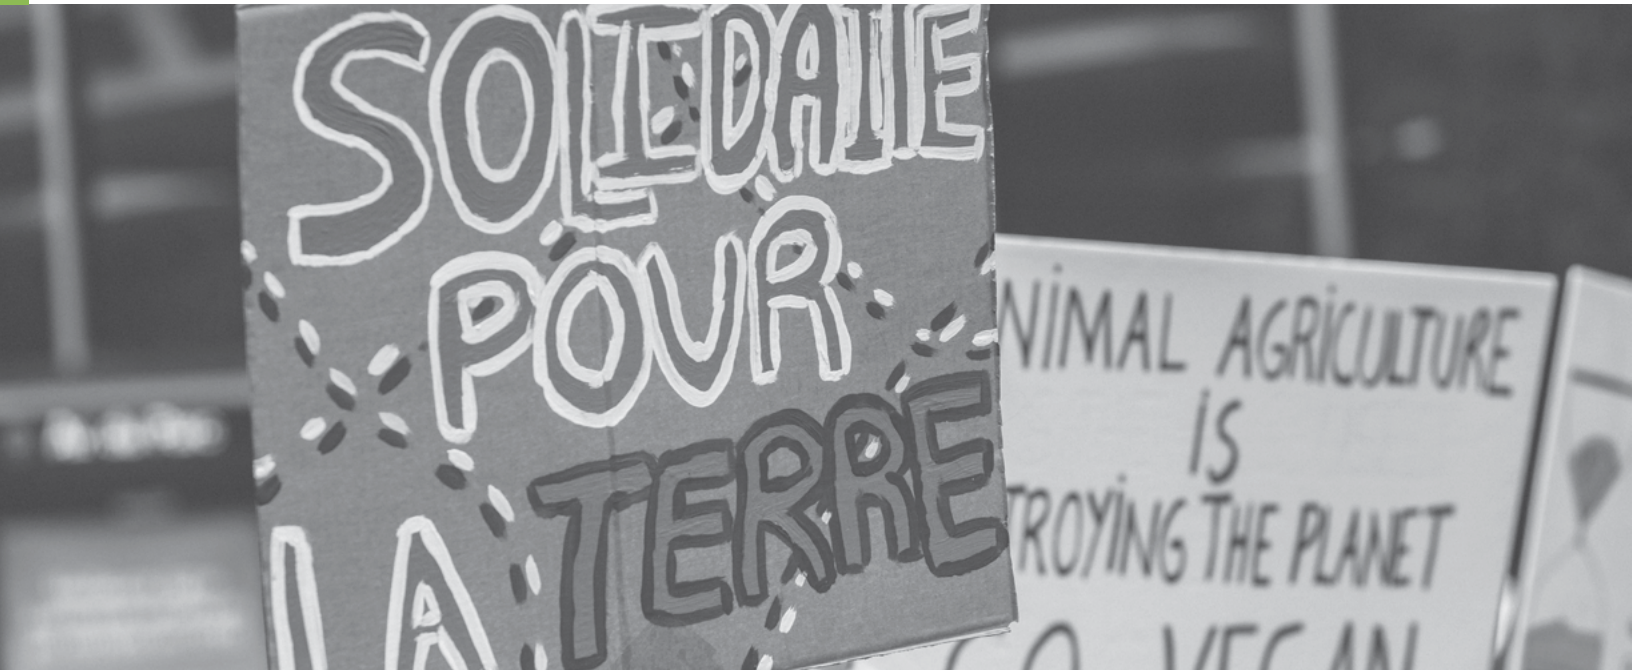 SOLIDAIE
POUR
LA TERRE
NIMAL AGRICULTURE
IS
TROYING THE PLANET
GO VEGAN